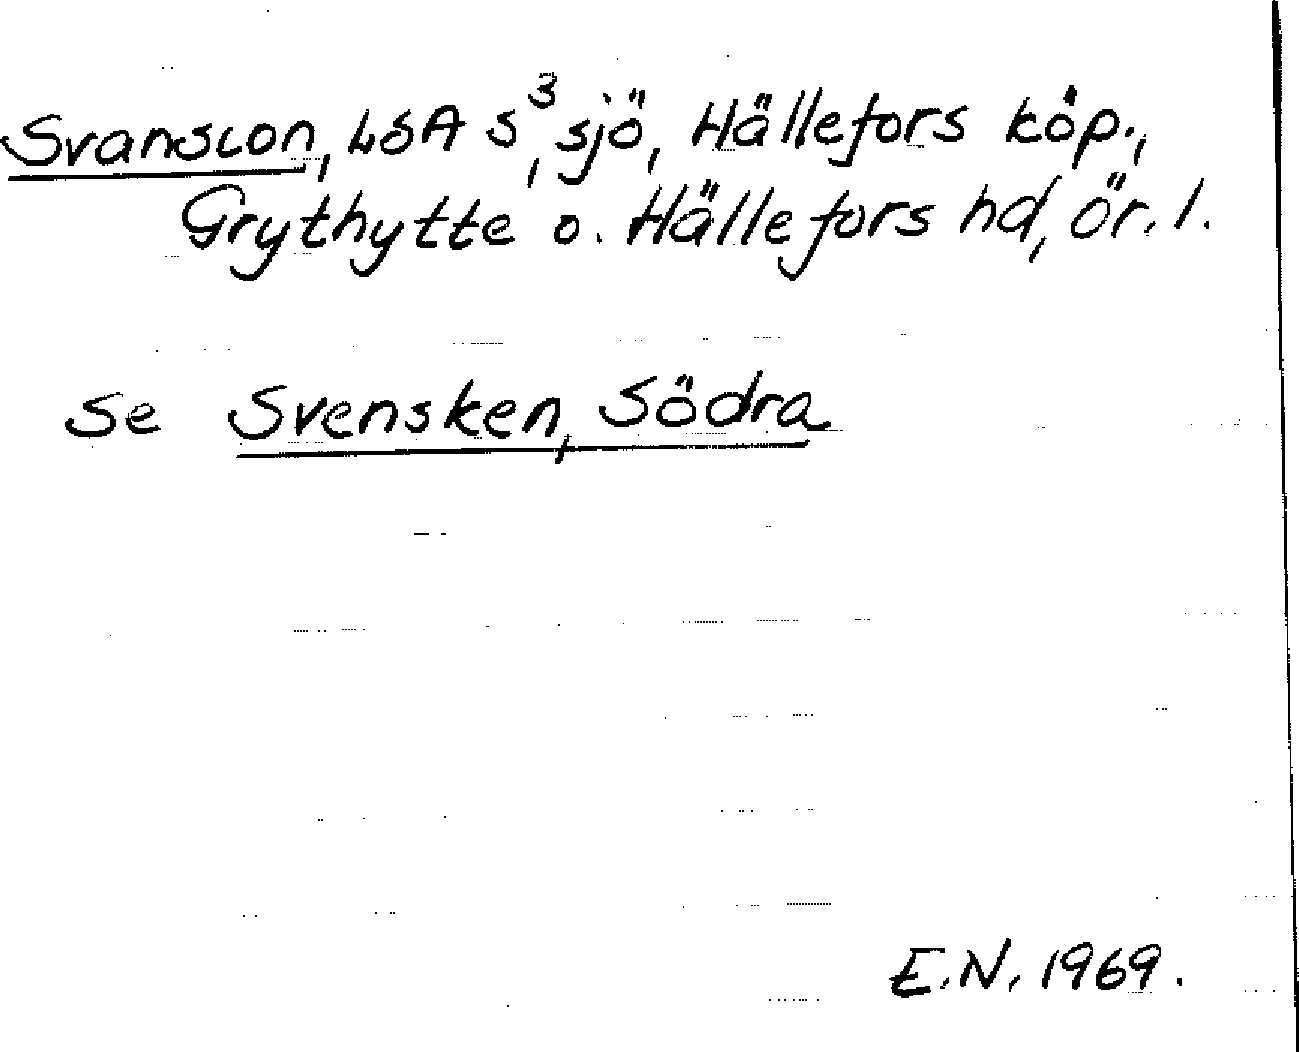 Svanscon, LSA S³, sjö, Hällefors köp.,
Grythytte o. Hällefors hd, Ör. l.
Se Svensken, Södra
E.N. 1969.